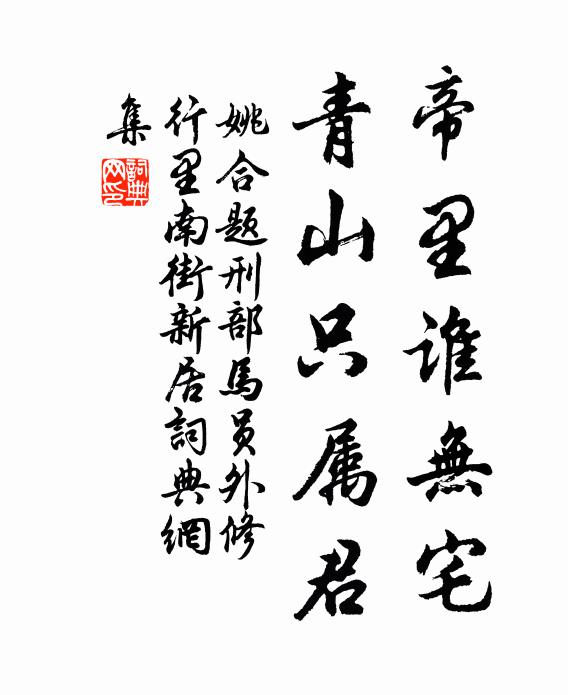 帝里谁無宅
青山只属君
姚合题刑部馬员外修
行里南街新居詞典網
集
詞典
网印